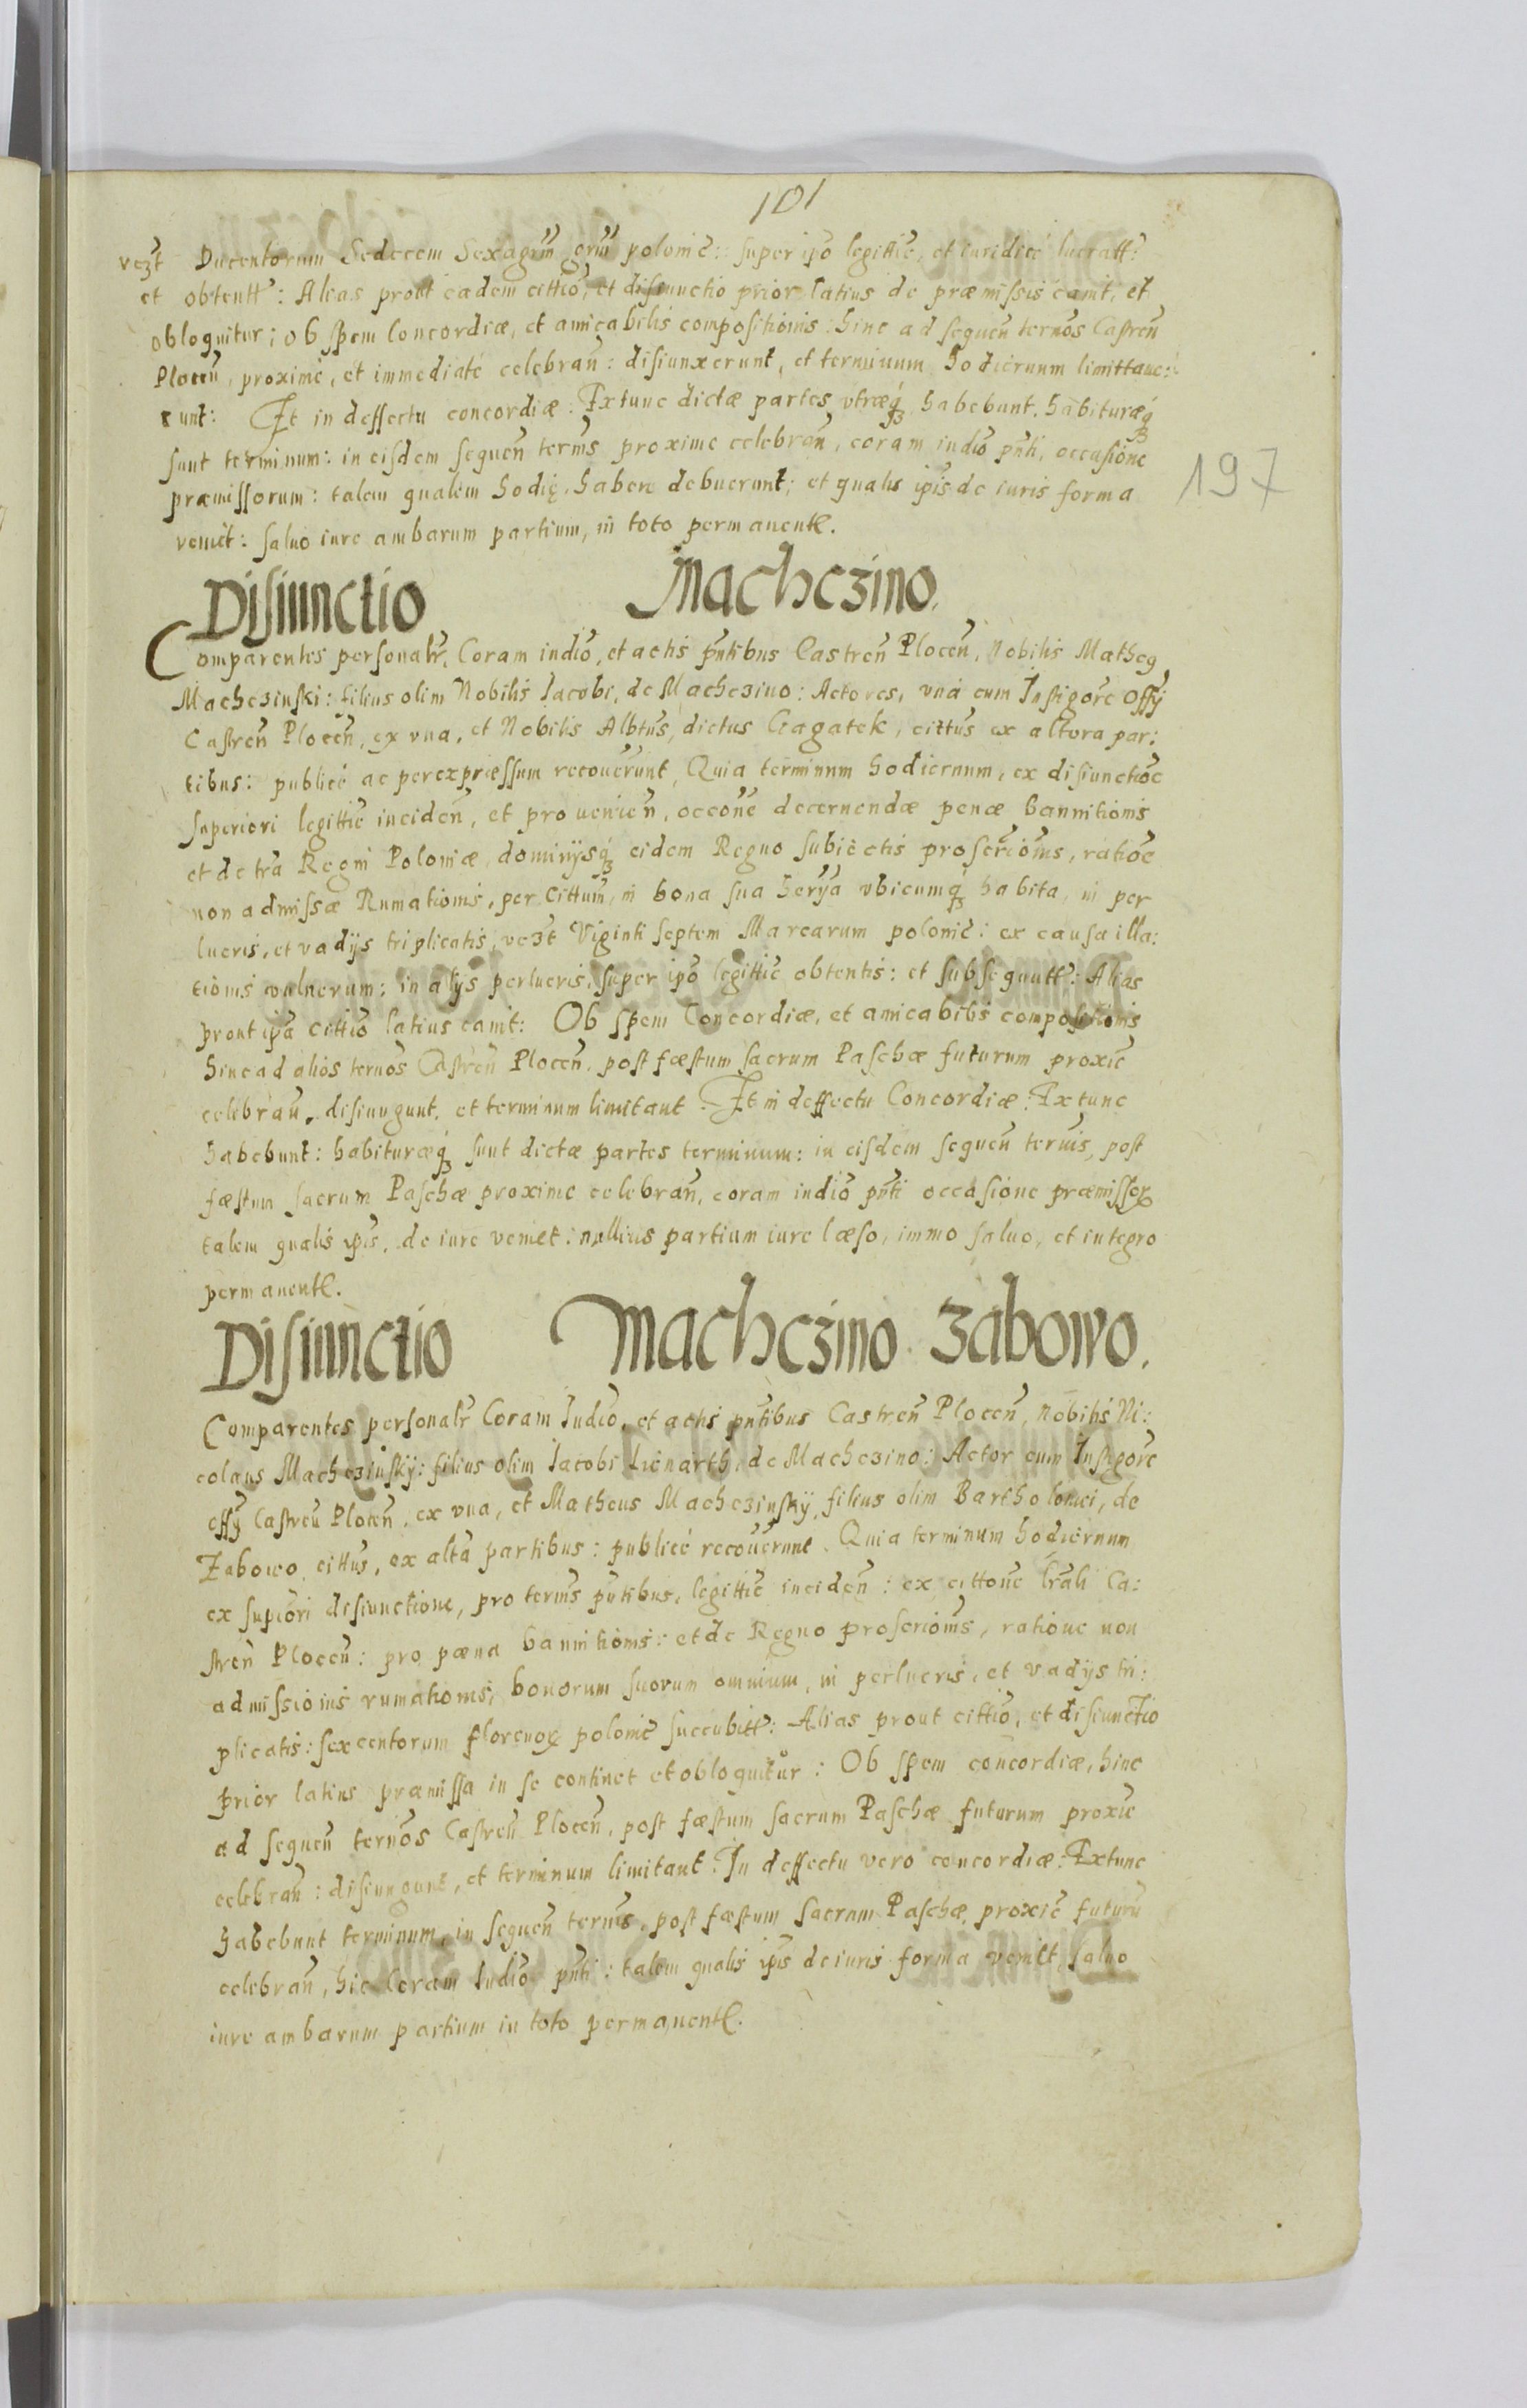 101
vezt Ducentorum Sedecem Sexagm̃ grm̃ polonic̃: super ip̃o legittie, et iuridicè lucratt:
et obtentt: Alias prout eadem cittiõ, et disiunctio prior latius de præmissis canit, et
obloquitur; ob spem Concordiæ, et amicabilis compositionis: hinc ad sequeñ terños Castreñ
Ploceñ, proximè, et immediatè celebrañ: disiunxerunt, et terminum hodiernum limittaue:
runt: Et in deffectu concordiæ: Extunc dictæ partes vtræq̃ habebunt, habituræq̃
sunt terminum: in eisdem sequeñ term̃s proxime celebrañ, coram iudiõ pñti, occasione
præmissorum: talem qualem hodie, habere debuerunt; et qualis ip̃is de iuris forma
veniet: saluo iure ambarum partium, in toto permanente.
197
Disiunctio Machczino.
Comparentes personalr̃, Coram iudiõ, et actis pñtibus Castreñ Ploceñ, Nobilis Matheg
Machczinski: filius olim Nobilis Iacobi, de Machczino: Actores, vná cum Instigorẽ Offÿ
Castreñ Ploceñ, ex vna, et Nobilis Albtũs, dictus Gagatek, cittũs ex altera par:
tibus: publicè ac per expræssum recouerũnt, Quia terminum hodiernum, ex disiunctiõe
superiori legittiẽ incideñ, et prouenieñ, occoñe decernendæ penæ bannitionis
et de tr̃a Regni Poloniæ, dominijsq̃ eidem Regno subiectis proscriom̃s, ratioẽ
non admissæ Rumationis, per Cittum̃, in bona sua herÿa vbicumq̃ habita, in per
lucris, et vadijs triplicatis, vezt Viginti septem Marcarum polonic̃: ex causa illa:
tionis vulnerum: in alijs perlucris, super ip̃o legittiẽ obtentis: et subsequutt: Alias
prout ip̃a Cittiõ latius canit: Ob spem Concordiæ, et amicabilis compositionis
hinc ad alios terños Castreñ Ploceñ, post fæstum sacrum Paschæ futurum proxiẽ
celebrañ, disiungunt, et terminum limitant. Et in deffectu Concordiæ: Extunc
habebunt: habituræq̃ sunt dictæ partes terminum: in eisdem sequeñ term̃is, post
fæstum sacrum Paschæ proxime celebrañ, coram iudiõ pñti occasione præmissoꝝ
talem qualis ip̃is, de iure veniet: nullius partium iure læso, immo saluo, et integro
permanente.
Disiunctio Machczino Zabowo.
Comparentes personalr̃ Coram Iudiõ, et actis pñtibus Castreñ Ploceñ, Nobilis Ni:
colaus Machczinskÿ: filius olim Iacobi Lienarth, de Machczino: Actor cum Instigorẽ
offÿ Castreñ Ploceñ, ex vna, et Matheus Machczinskÿ, filius olim Bartholomei, de
Zabowo, cittũs, ex altã partibus: publicè recouerũnt. Quia terminum hodiernum
ex supiõri disiunctione, pro term̃s pñtibus, legittiẽ incideñ: ex cittoñe lr̃ali Ca:
streñ Ploceñ: pro pæna bannitionis: et de Regno proscriom̃s, ratione non
admissionis rumationis, bonorum suorum omnium, in perlucris, et vadijs tri:
plicatis: sexcentorum florenoꝝ polonic̃ succubitt: Alias prout cittiõ, et disiunctio
prior latius præmissa in se continet et obloquitur: Ob spem concordiæ, hinc
ad sequeñ terños Castreñ Ploceñ, post fæstum sacrum Paschæ futurum proxiẽ
celebrañ: disiungunt, et terminum limitant. In deffectu vero concordiæ: Extunc
habebunt terminum, in sequeñ term̃s, post fæstum sacrum Paschæ, proxiẽ futurũ
celebrañ, hic Coram Iudiõ pñti: talem qualis ip̃is de iuris forma veniet, saluo
iure ambarum partium in toto permanente.